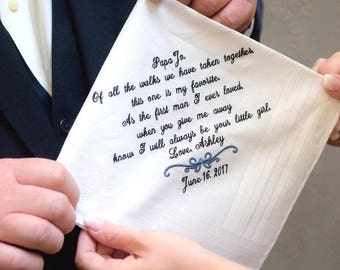 Papa Jo,
Of all the walks we have taken together,
this one is my favorite.
As the first man I ever loved,
when you give me away
know I will always be your little girl.
Love, Ashley
June 16, 2017